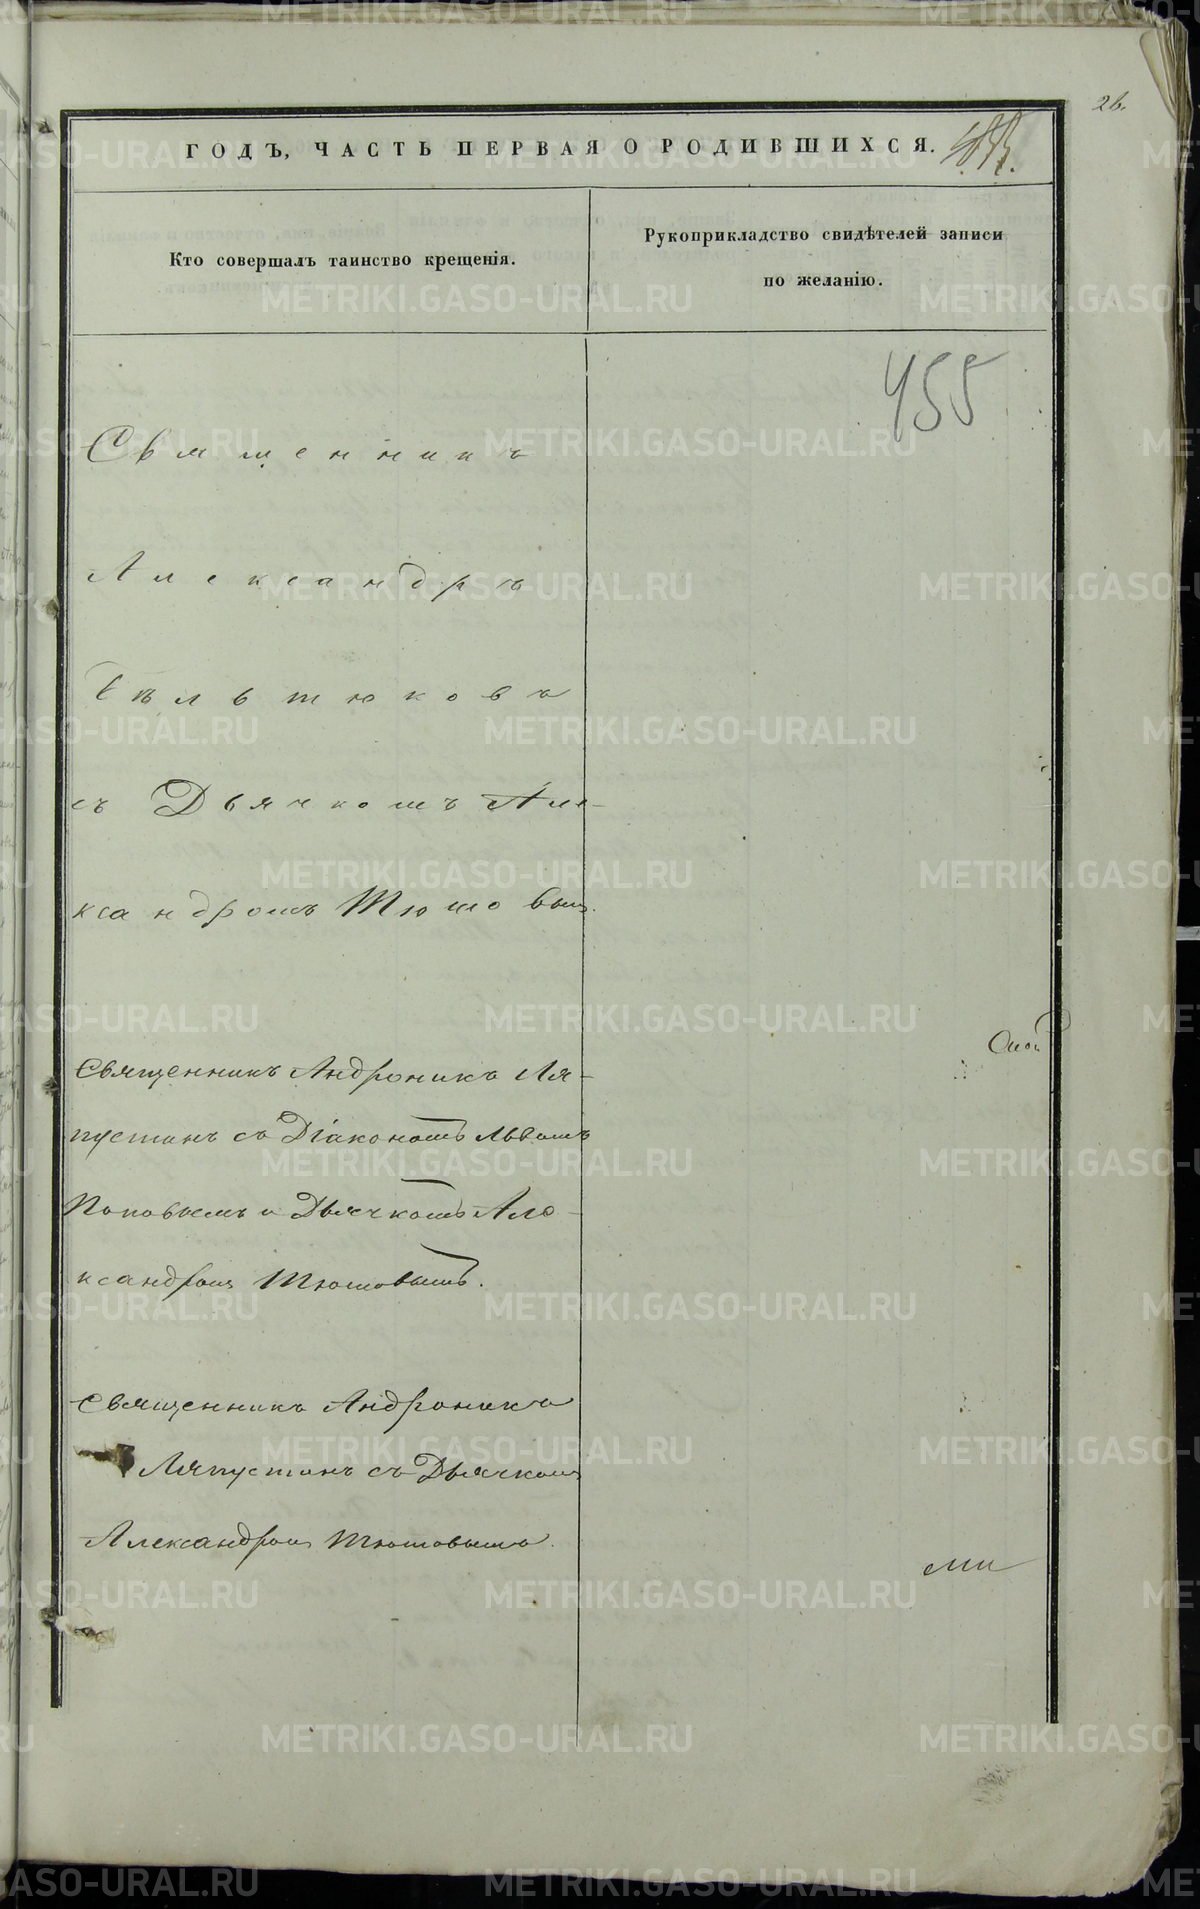 26.
ГОДЪ, ЧАСТЬ ПЕРВАЯ О РОДИВШИХСЯ.
Кто совершалъ таинство крещенія.
Рукоприкладство свидѣтелей записи
по желанію.
455
Священникъ
Александръ
Бѣльтюковъ
съ Дьячкомъ Але-
ксандромъ Тюшовым.
Священникъ Андроникъ Ля-
пустинъ съ Діакономъ Львомъ
Поповымъ и Дьячкомъ Але-
ксандром Тюшовымъ.
Священникъ Андроникъ
Ляпустинъ съ Дьячком
Александром Тюшовымъ.
ми
METRIKI.GASO-URAL.RU